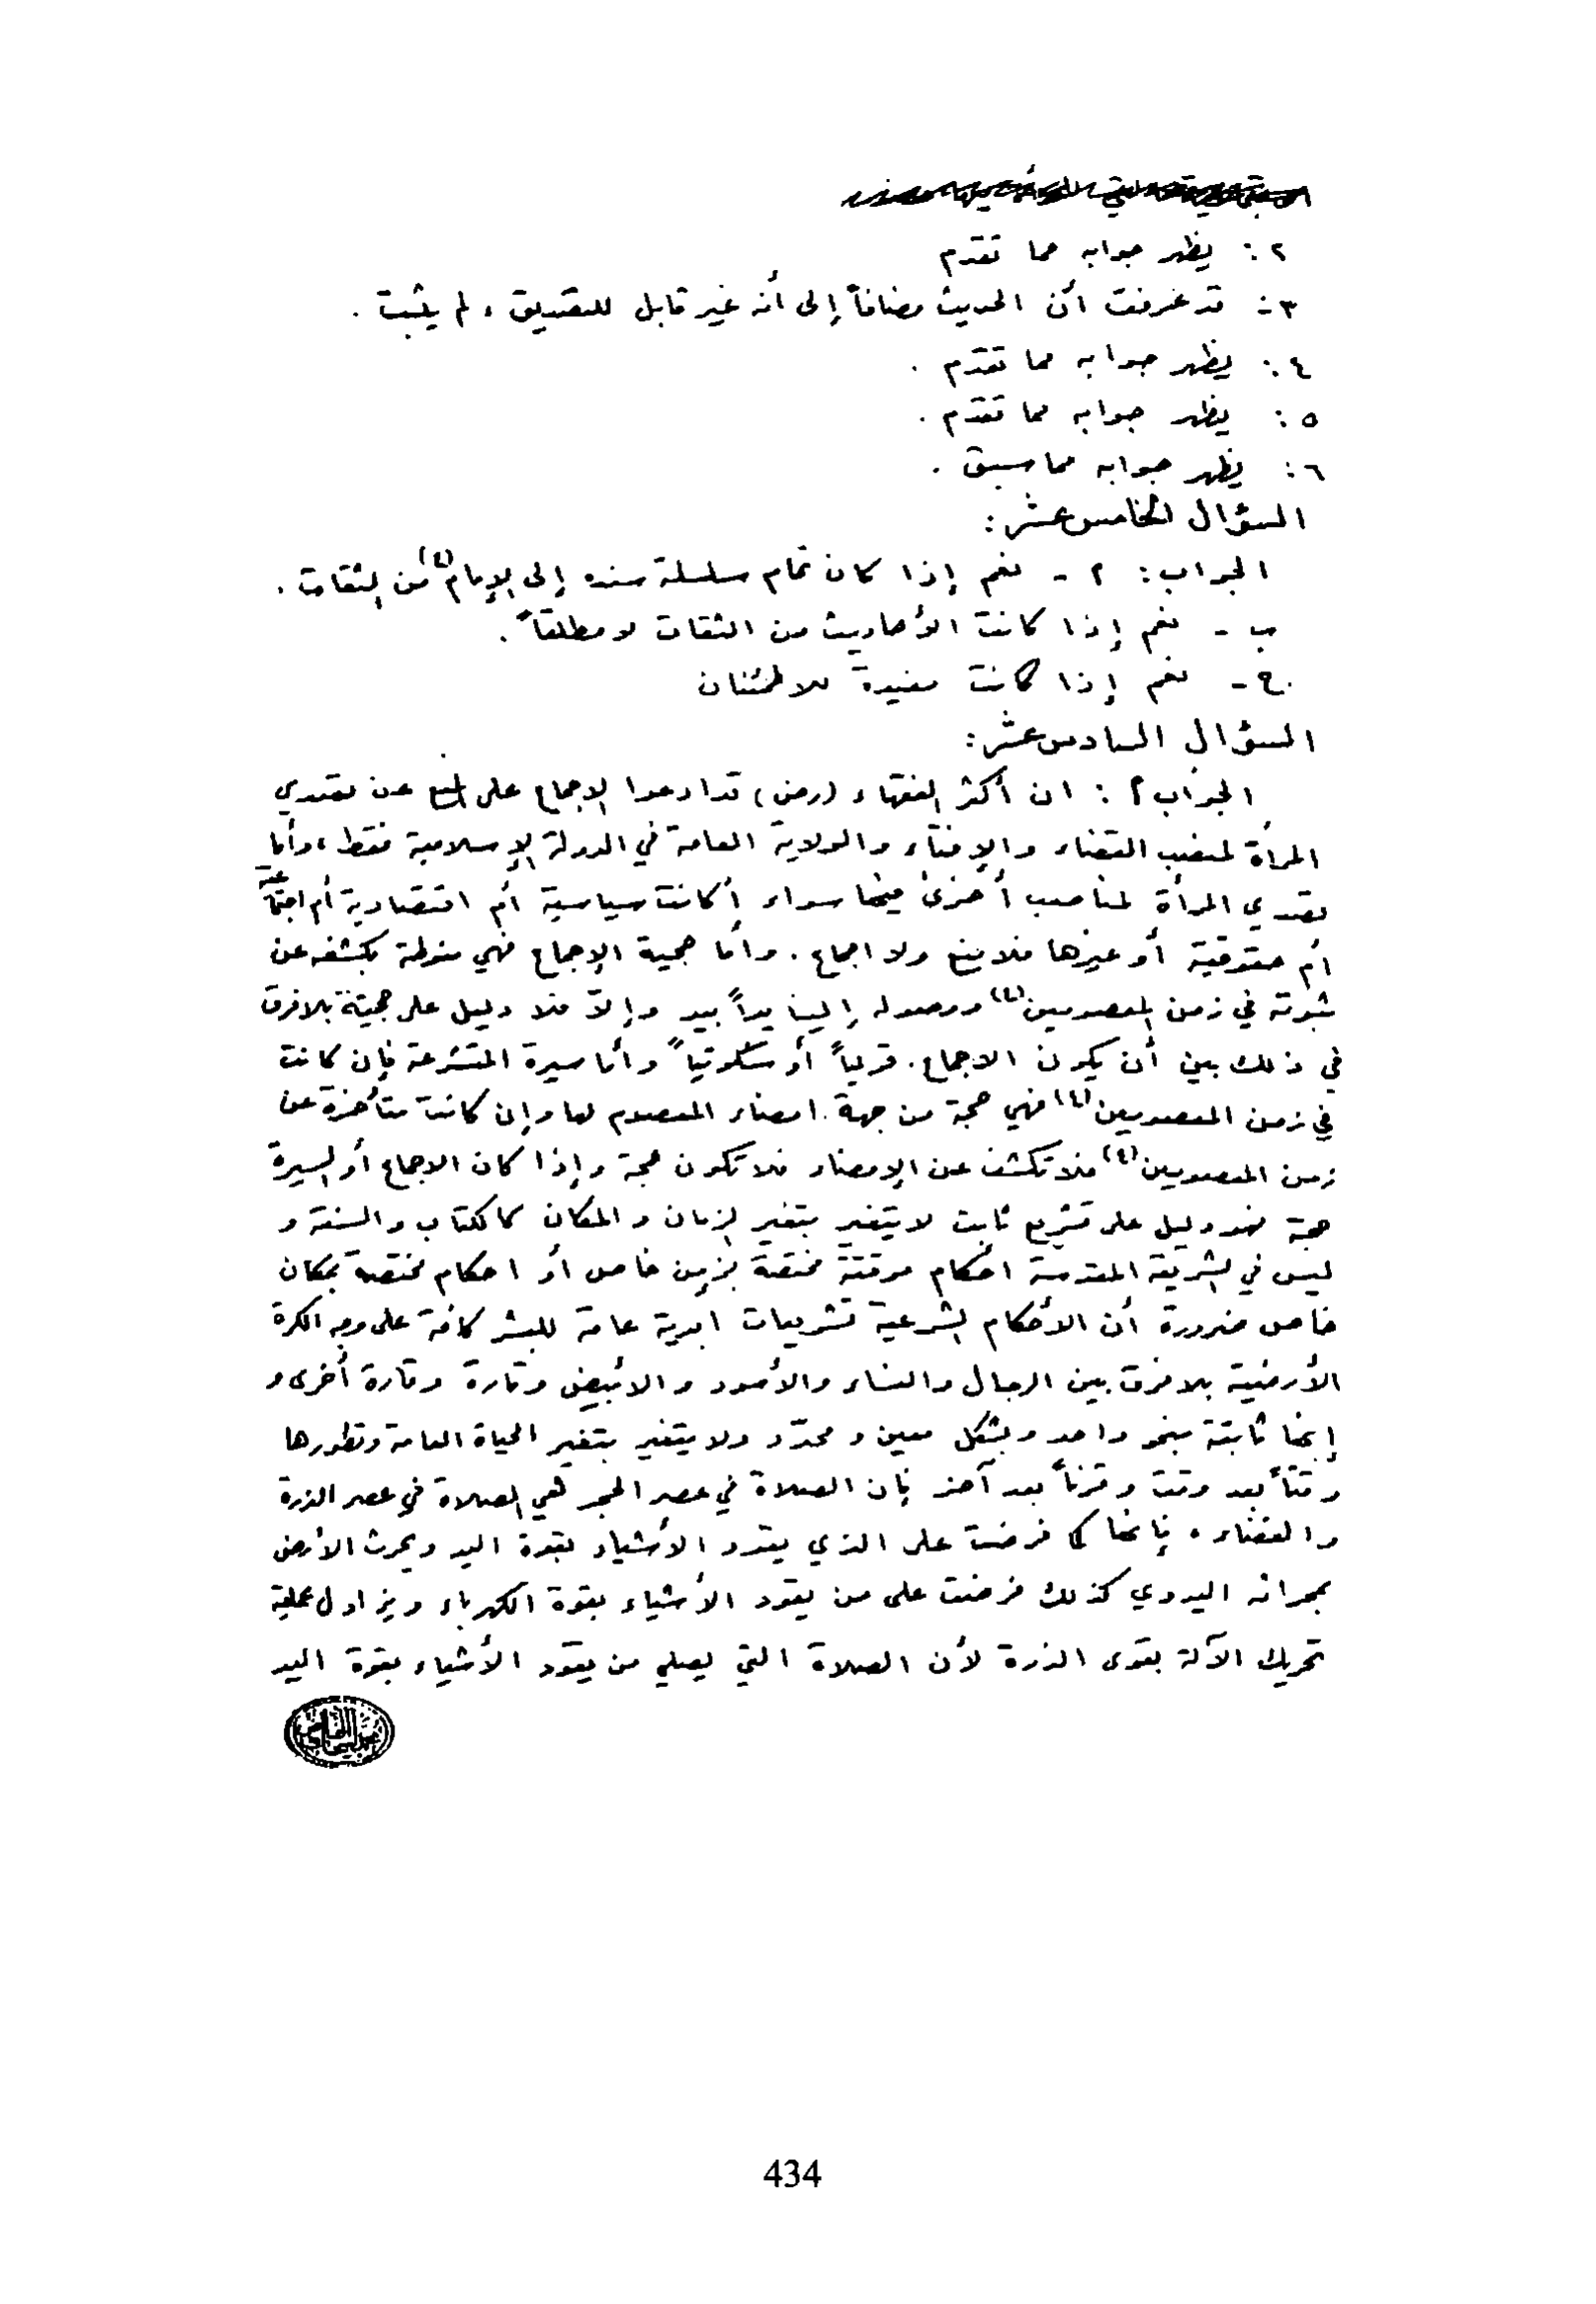 ٢: يظهر جوابه مما تقدم
٣: قد عرفت أن الحديث مضافاً إلى أنه غير قابل للتصديق، لم يثبت.
٤: يظهر جوابه مما تقدّم.
٥: يظهر جوابه مما تقدّم.
٦: يظهر جوابه مما سبق.
السؤال الخامس عشر:
الجواب: ٢ - نعم إذا كان تمام سلسلة سنده إلى الإمام (ع) من الثقات.
ب - نعم إذا كانت الأحاديث من الثقات لا مطلقاً.
ج - نعم إذا كانت مفيدة للاطمئنان
السؤال السادس عشر:
الجواب ٢: ان أكثر الفقهاء (رض) قد ادعوا الاجماع على المنع عن تصدي
المرأة لمنصب القضاء والإفتاء والولاية العامة في الدولة الإسلامية فقط، وأما
تصدي المرأة لمناصب أخرى فيها سواء أكانت سياسية أم اقتصادية أم اجتماعية
أم حقوقية أو غيرها فلا منع ولا اجماع. وأما حجية الإجماع فهي منوطة بكشفه عن
ثبوته في زمن المعصومين (ع) ووصوله إلينا يداً بيد وإلاّ فلا دليل على حجيته بلا فرق
في ذلك بين أن يكون الاجماع. قولياً أو سكوتياً وأما سيرة المتشرعة فإن كانت
في زمن المعصومين (ع) فهي حجة من جهة. امضاء المعصوم لها وإن كانت متأخرة عن
زمن المعصومين (ع) فلا تكشف عن الإمضاء فلا تكون حجة وإذا كان الاجماع أو السيرة
حجة فهو دليل على تشريع ثابت لا يتغير بتغير الزمان والمكان كالكتاب والسنة و
ليس في الشريعة المقدسة احكام موقتة مختصة بزمن خاص أو احكام مختصة بمكان
خاص ضرورة أن الأحكام الشرعية تشريعات ابدية عامة للبشر كافة على وجه الكرة
الأرضية بلا فرق بين الرجال والنساء والأسود والأبيض وتارة وتارة أخرى و
إنها ثابتة بنحو واحد وبشكل معين ومحدّد ولا يتغير بتغير الحياة العامة وتطورها
وقتاً بعد وقت وقرناً بعد آخر فإن الصلاة في عصر الحجر هي الصلاة في عصر الذرة
والفضاء، فإنها كما فرضت على الذي يقود الأشياء بقوة اليد ويحرث الأرض
بمحراثه اليدوي كذلك فرضت على من يقود الأشياء بقوة الكهرباء ويزاول عملية
تحريك الآلة بقوى الذرة لأن الصلاة التي يصلي من يقود الأشياء بقوة اليد
434